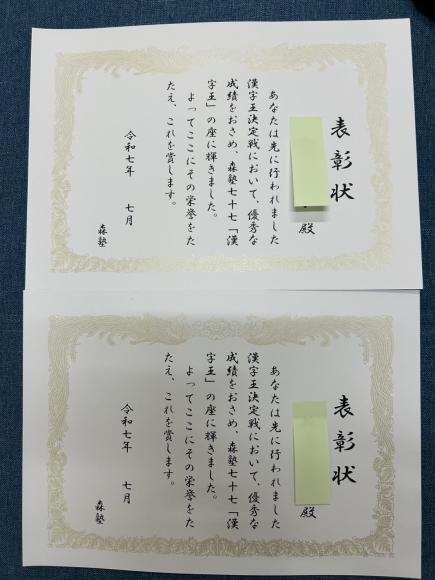 表彰状
殿
あなたは先に行われました
漢字王決定戦において、優秀な
成績をおさめ、森塾七十七「漢
字王」の座に輝きました。
よってここにその栄誉をた
たえ、これを賞します。
令和七年 七月
森塾
表彰状
殿
あなたは先に行われました
漢字王決定戦において、優秀な
成績をおさめ、森塾七十七「漢
字王」の座に輝きました。
よってここにその栄誉をた
たえ、これを賞します。
令和七年 七月
森塾